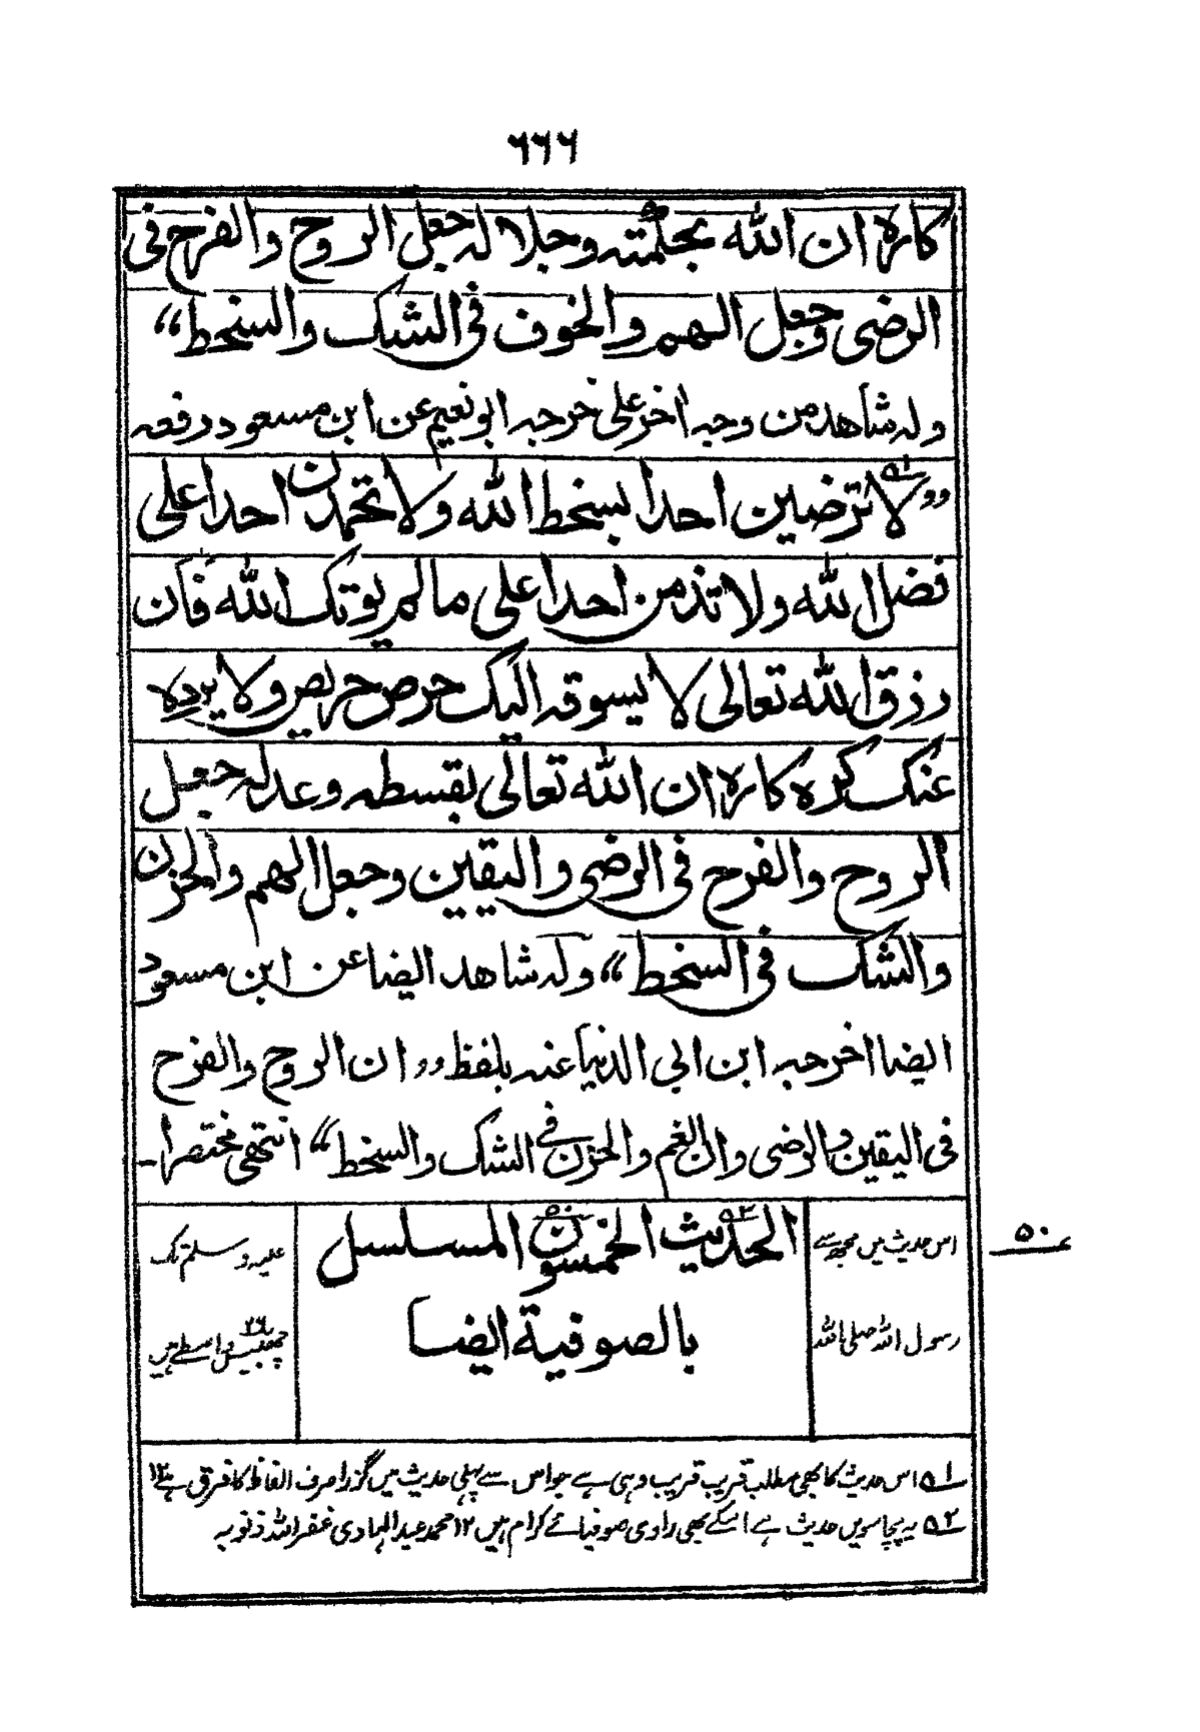 ٦٦٦
كاره ان الله بحكمته وجلاله جعل الروح والفرح فى
الرضى وجعل الهم والخوف فى الشك والسخط"
وله شاهد من وجه اخر على خرجه ابو نعيم عن ابن مسعود رفعه
"لا ترضين احدا بسخط الله ولا تحمدن احدا على
فضل الله ولا تذمن احدا على مالم يوتك الله فان
رزق الله تعالى لا يسوقه اليك حرص حريص ولا يرده
عنك كره كاره ان الله تعالى بقسطه وعدله جعل
الروح والفرح فى الرضى واليقين وجعل الهم والحزن
والشك فى السخط" وله شاهد ايضا عن ابن مسعود
ايضا اخرجه ابن ابي الدنيا عنه بلفظ "ان الروح والفرح
فى اليقين والرضى وان الغم والحزن فى الشك والسخط" انتهى مختصرا۔
٥٠
اس حدیث میں مجھ سے
رسول اللہ صلی اللہ
الحديث الخمسون المسلسل
بالصوفية ايضا
علیہ وسلم تک
چھبیس واسطے ہیں
٢٦
۱؎ اس حدیث کا بھی مطلب قریب قریب وہی ہے جو اس سے پہلی حدیث میں گزرا صرف الفاظ کا فرق ہے ۱۲
۲؎ یہ پچاسویں حدیث ہے اسکے بھی راوی صوفیائے کرام ہیں ۱۲ محمد عبدالہادی غفر اللہ ذنوبہ